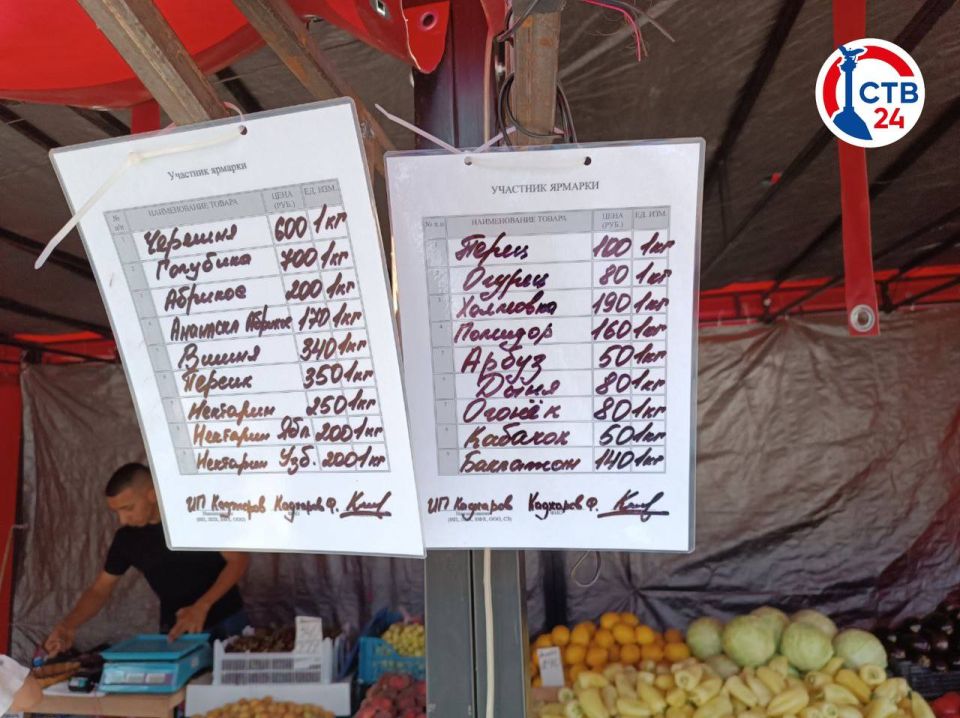 СТВ
24
Участник ярмарки
№ п/п НАИМЕНОВАНИЕ ТОВАРА ЦЕНА (РУБ.) ЕД. ИЗМ.
1 Черешня 600 1кг
2 Голубика 700 1кг
3 Абрикос 200 1кг
4 Абрикос 170 1кг
5 Вишня 340 1кг
6 Персик 350 1кг
7 Нектарин 250 1кг
8 Нектарин Ябл. 200 1кг
9 Нектарин Узб. 200 1кг
ИП Каджаров Каджаров Ф.
УЧАСТНИК ЯРМАРКИ
№ п.п НАИМЕНОВАНИЕ ТОВАРА ЦЕНА (РУБ) ЕД. ИЗМ.
1 Перец 100 1кг
2 Огурец 80 1кг
3 190 1кг
4 Помидор 160 1кг
5 Арбуз 50 1кг
6 Дыня 80 1кг
7 Огонёк 80 1кг
8 Кабачок 50 1кг
9 Баклажан 140 1кг
ИП Каджаров Каджаров Ф.